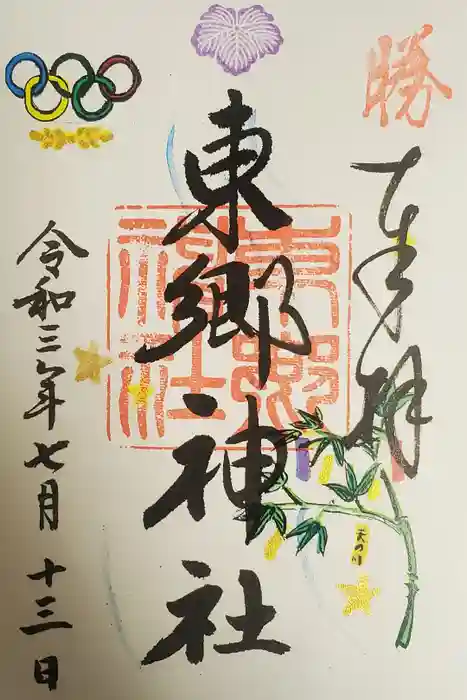 勝
奉拝
東郷神社
東郷神社
令和三年七月十三日
天の川